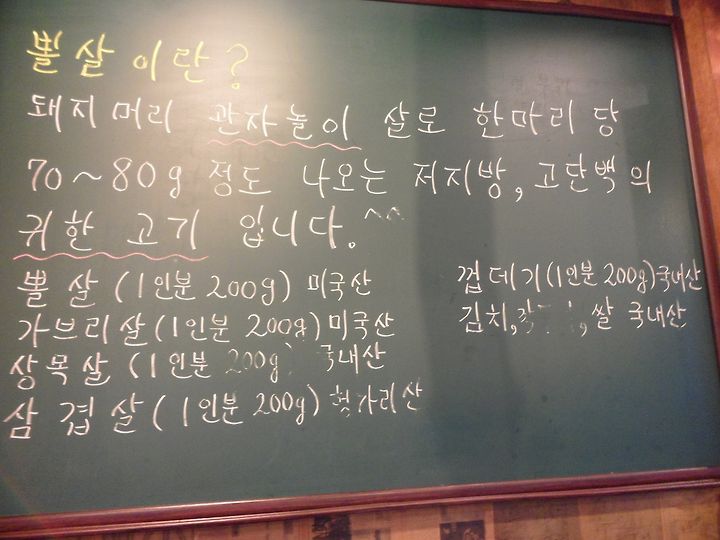 뽈살이란?
돼지머리 관자놀이 살로 한마리 당
70~80g 정도 나오는 저지방, 고단백의
귀한 고기 입니다.^^
뽈살 (1인분 200g) 미국산
가브리살 (1인분 200g) 미국산
상목살 (1인분 200g) 국내산
삼겹살 (1인분 200g) 헝가리산
껍데기 (1인분 200g) 국내산
김치, , 쌀 국내산